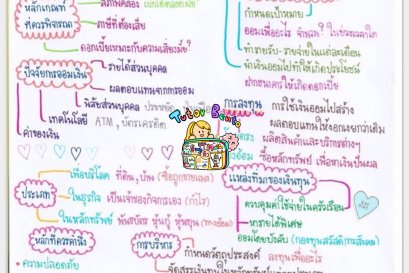 หลักเกณฑ์
ที่ควรพิจารณา
สภาพคล่อง
ภาษีที่ต้องเสีย
ดอกเบี้ยเหมาะกับความเสี่ยงมั้ย?
กำหนดเป้าหมาย
ออมเพื่ออะไร จำนวน? ในช่วงเวลาใด
ทำรายรับ-รายจ่ายในแต่ละเดือน
นำเงินออมไปทำให้เกิดประโยชน์
ฝากธนาคารให้เกิดดอกเบี้ย
ปัจจัยการออมเงิน
รายได้ส่วนบุคคล
ผลตอบแทนจากการออม
นิสัยส่วนบุคคล
เทคโนโลยี ATM, บัตรเครดิต
ค่าของเงิน
Tutor
การลงทุน
การใช้เงินออมไปสร้าง
ผลตอบแทนให้งอกเงยกว่าเดิม
ตรง
ผลิตสินค้าและบริการต่างๆ
อ้อม
ซื้อหลักทรัพย์ เพื่อหาเงินปันผล
ประเภท
เพื่อบริโภค ที่ดิน, บ้าน (ซื้อถูกขายแพง)
ในธุรกิจ เป็นเจ้าของกิจการเอง (กำไร)
ในหลักทรัพย์ พันธบัตร หุ้นกู้ หุ้นทุน (ทางอ้อม)
แหล่งที่มาของเงินทุน
ควบคุมค่าใช้จ่ายในครัวเรือน
หารายได้พิเศษ
ออมโดยบังคับ (กองทุนสวัสดิการสังคม)
หลักที่ควรคำนึง
* ความปลอดภัย
การบริหาร
กำหนดวัตถุประสงค์ ลงทุนเพื่ออะไร